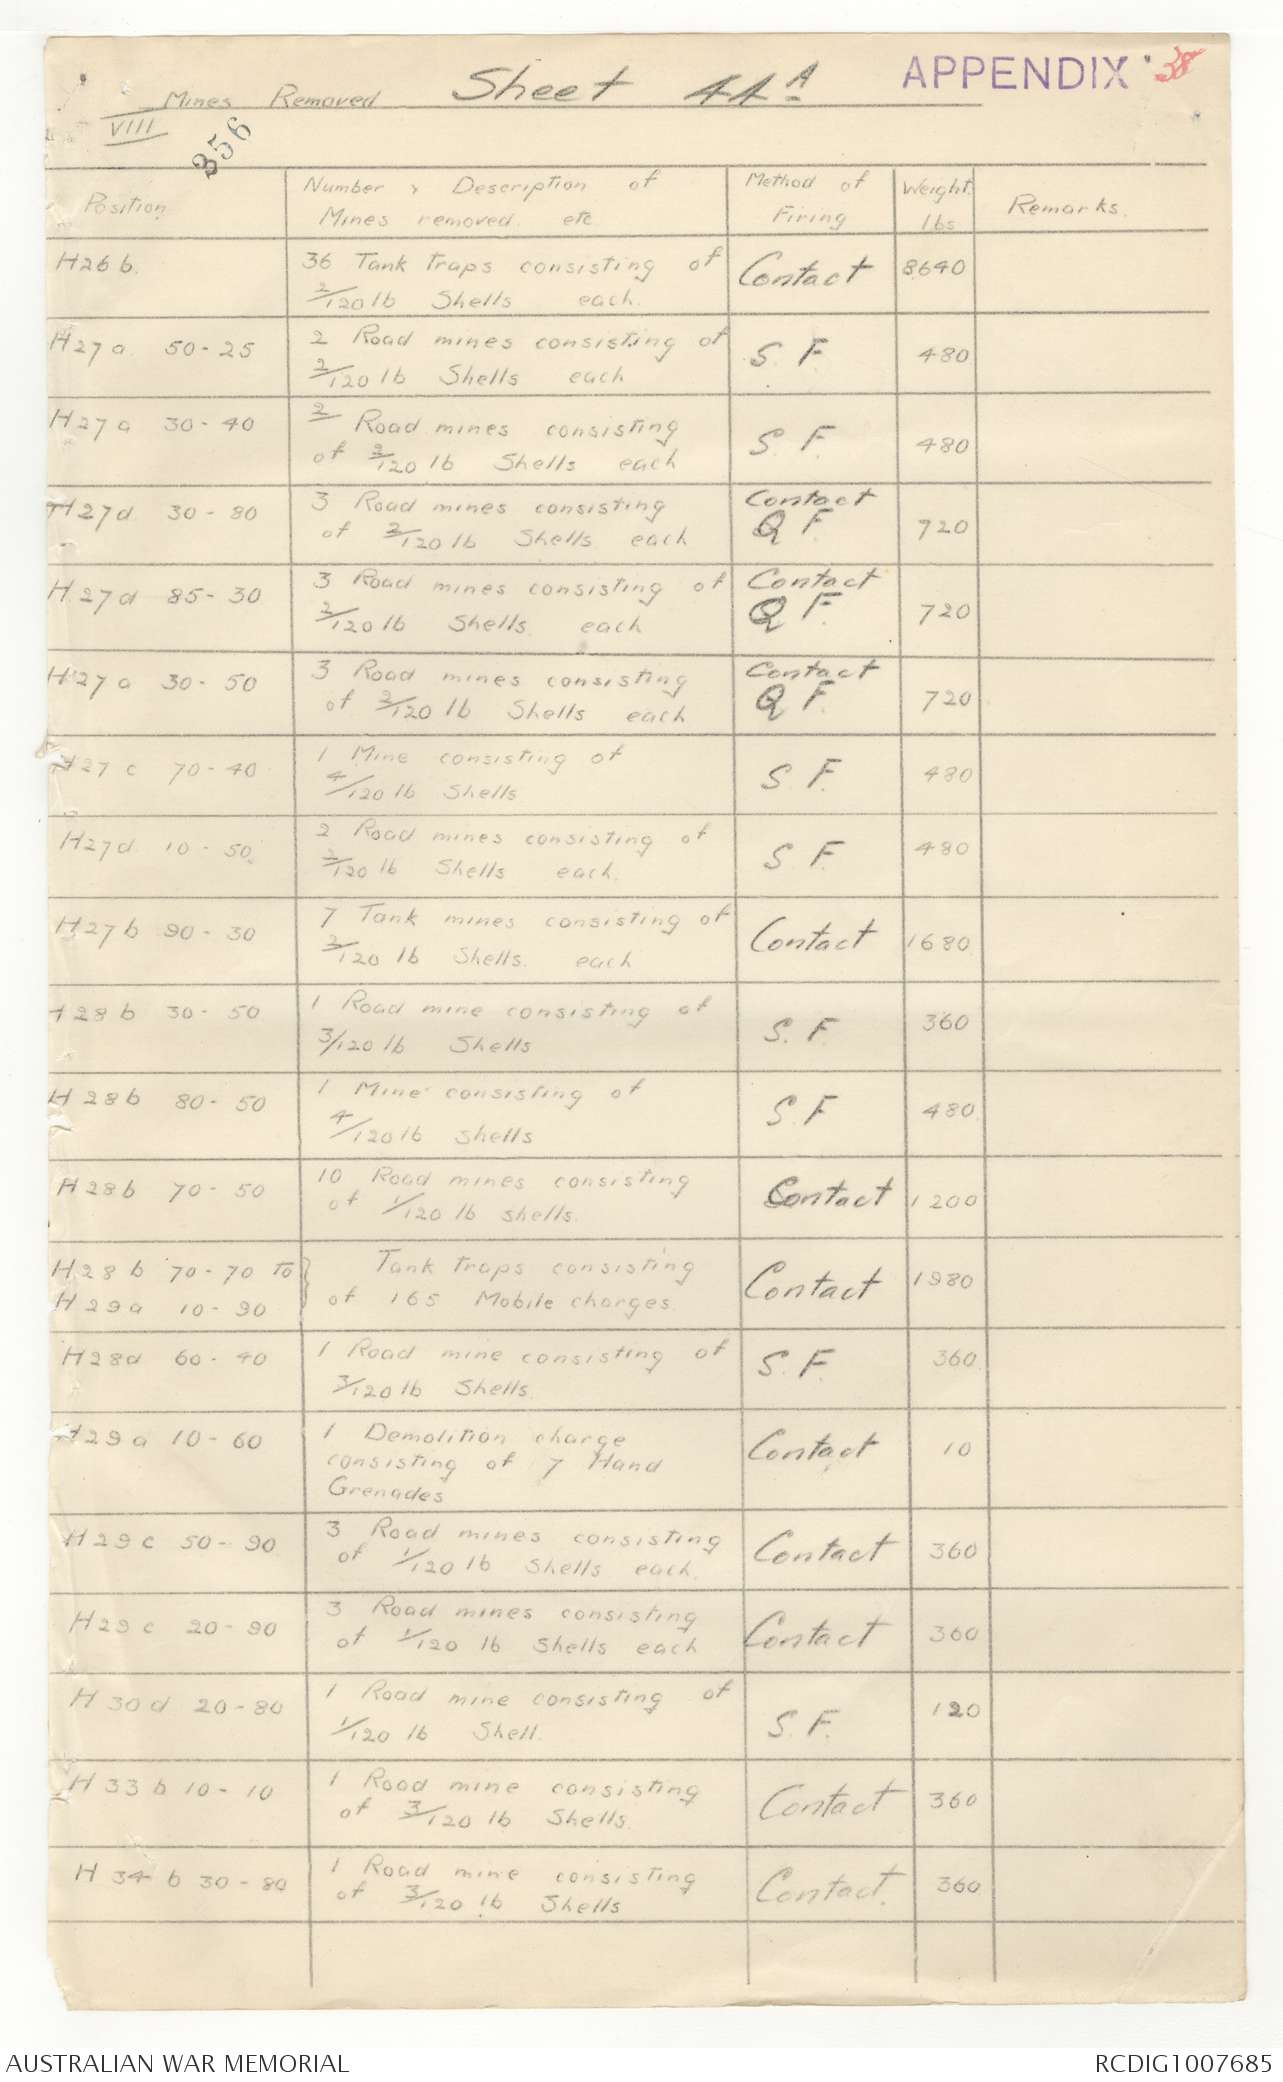 APPENDIX 38
Mines Removed Sheet 44A
VIII
356
Position
Number & Description of
Mines removed. etc
Method of
Firing
Weight.
lbs
Remarks.
H26b. 36 Tank traps consisting of Contact 8640
2/120 lb Shells each.
H27a 50-25 2 Road mines consisting of S. F. 480
2/120 lb Shells each
H27a 30-40 2 Road mines consisting S. F. 480
of 2/120 lb Shells each
H27d 30-80 3 Road mines consisting Contact 720
of 2/120 lb Shells each Q F.
H.27d 85-30 3 Road mines consisting of Contact 720
2/120 lb Shells. each Q F.
H27a 30-50 3 Road mines consisting Contact 720
of 2/120 lb Shells each Q F.
H27c 70-40 1 Mine consisting of S F. 480
4/120 lb Shells
H27d 10-50 2 Road mines consisting of S F. 480
2/120 lb Shells each.
H27b 90-30 7 Tank mines consisting of Contact 1680
2/120 lb Shells. each
H28b 30-50 1 Road mine consisting of S. F. 360
3/120 lb Shells
H28b 80-50 1 Mine consisting of S. F 480
4/120 lb Shells
H28b 70-50 10 Road mines consisting Contact 1200
of 1/120 lb shells.
H28b 70-70 to Tank traps consisting Contact 1980
H29a 10-90 of 165 Mobile charges.
H28d 60-40 1 Road mine consisting of S. F. 360
3/120 lb Shells.
H29a 10-60 1 Demolition charge Contact 10
consisting of 7 Hand
Grenades
H29c 50-90 3 Road mines consisting Contact 360
of 1/120 lb Shells each.
H29c 20-90 3 Road mines consisting Contact 360
of 1/120 lb Shells each
H30d 20-80 1 Road mine consisting of S. F. 120
1/120 lb Shell.
H33b 10-10 1 Road mine consisting Contact 360
of 3/120 lb Shells.
H34b 30-80 1 Road mine consisting Contact. 360
of 3/120 lb Shells
AUSTRALIAN WAR MEMORIAL RCDIG1007685